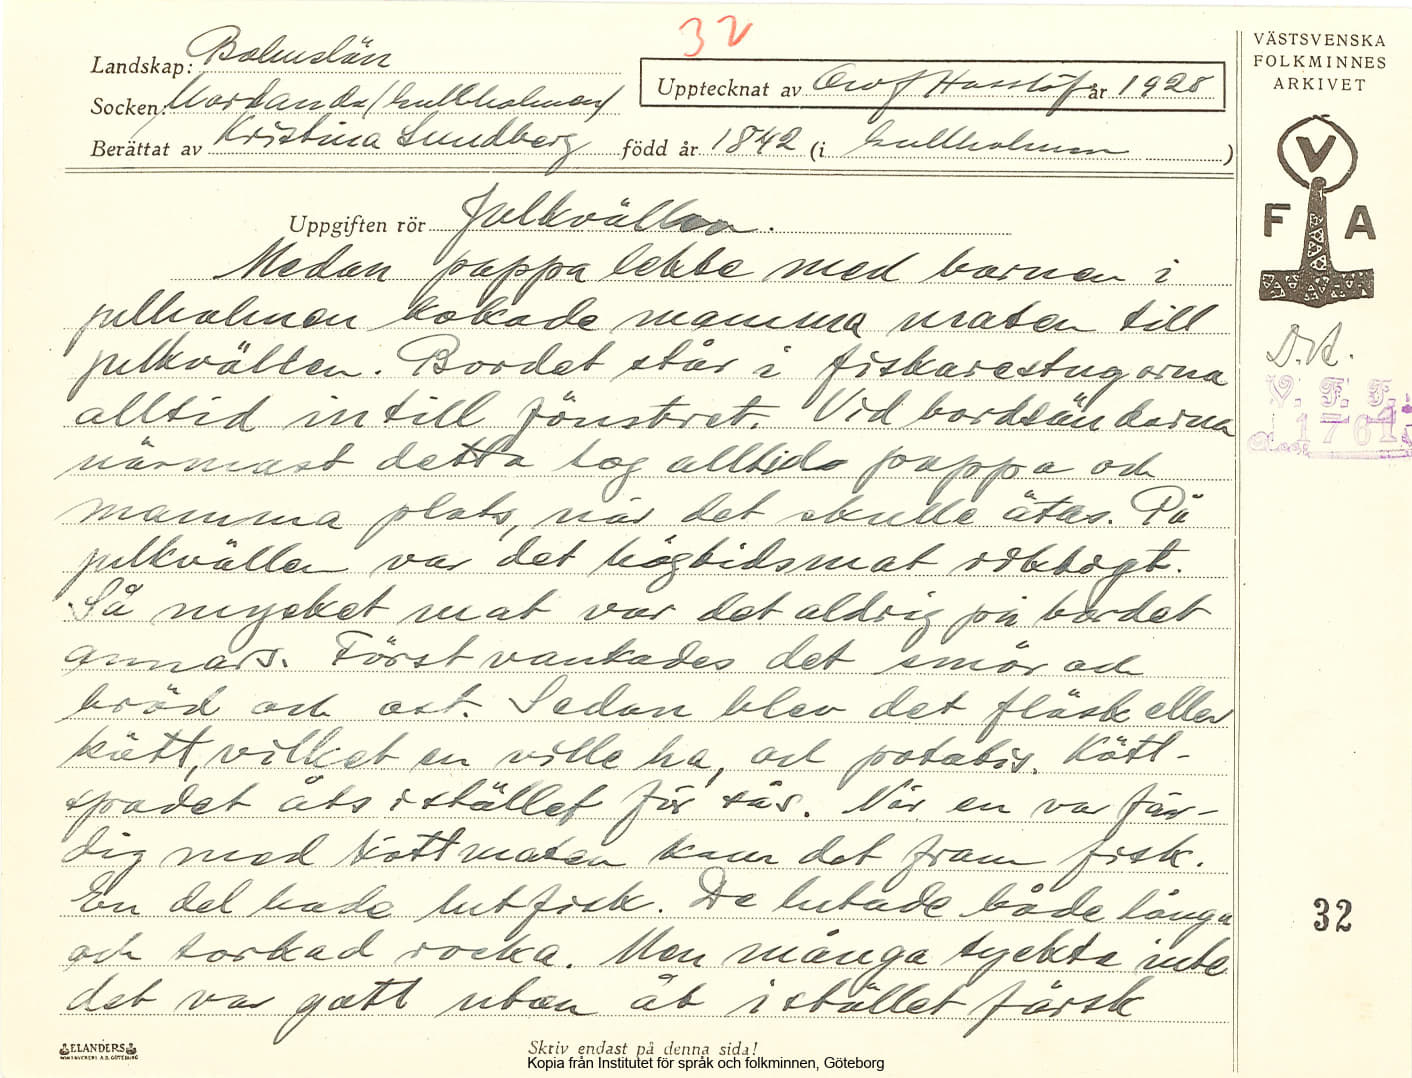 32
Landskap: Bohuslän
Socken: Morlanda (Gullholmen)
Upptecknat av Olof Hasslöf år 1928
Berättat av Kristina Lundberg född år 1842 (i Gullholmen)
VÄSTSVENSKA
FOLKMINNES
ARKIVET
V
F A
Uppgiften rör Julkvällen.
Medan pappa lekte med barnen i
julhalmen kokade mamma maten till
julkvällen. Bordet står i fiskarestugorna
alltid intill fönstret. Vid bordsändarna
närmast detta tog alltid pappa och
mamma plats, när det skulle ätas. På
julkvällen var det högtidsmat riktigt.
Så mycket mat var det aldrig på bordet
annars. Först vankades det smör och
bröd och ost. Sedan blev det fläsk eller
kött, vilket en ville ha, och potatis. Kött-
spadet åts istället för sås. När en var fär-
dig med köttmaten kom det fram fisk.
En del hade lutfisk. De lutade både långa
och torkad rocka. Men många tyckte inte
det var gott utan åt istället färsk
D.A.
V. F. F.
1761
32
ELANDERS
Skriv endast på denna sida!
Kopia från Institutet för språk och folkminnen, Göteborg